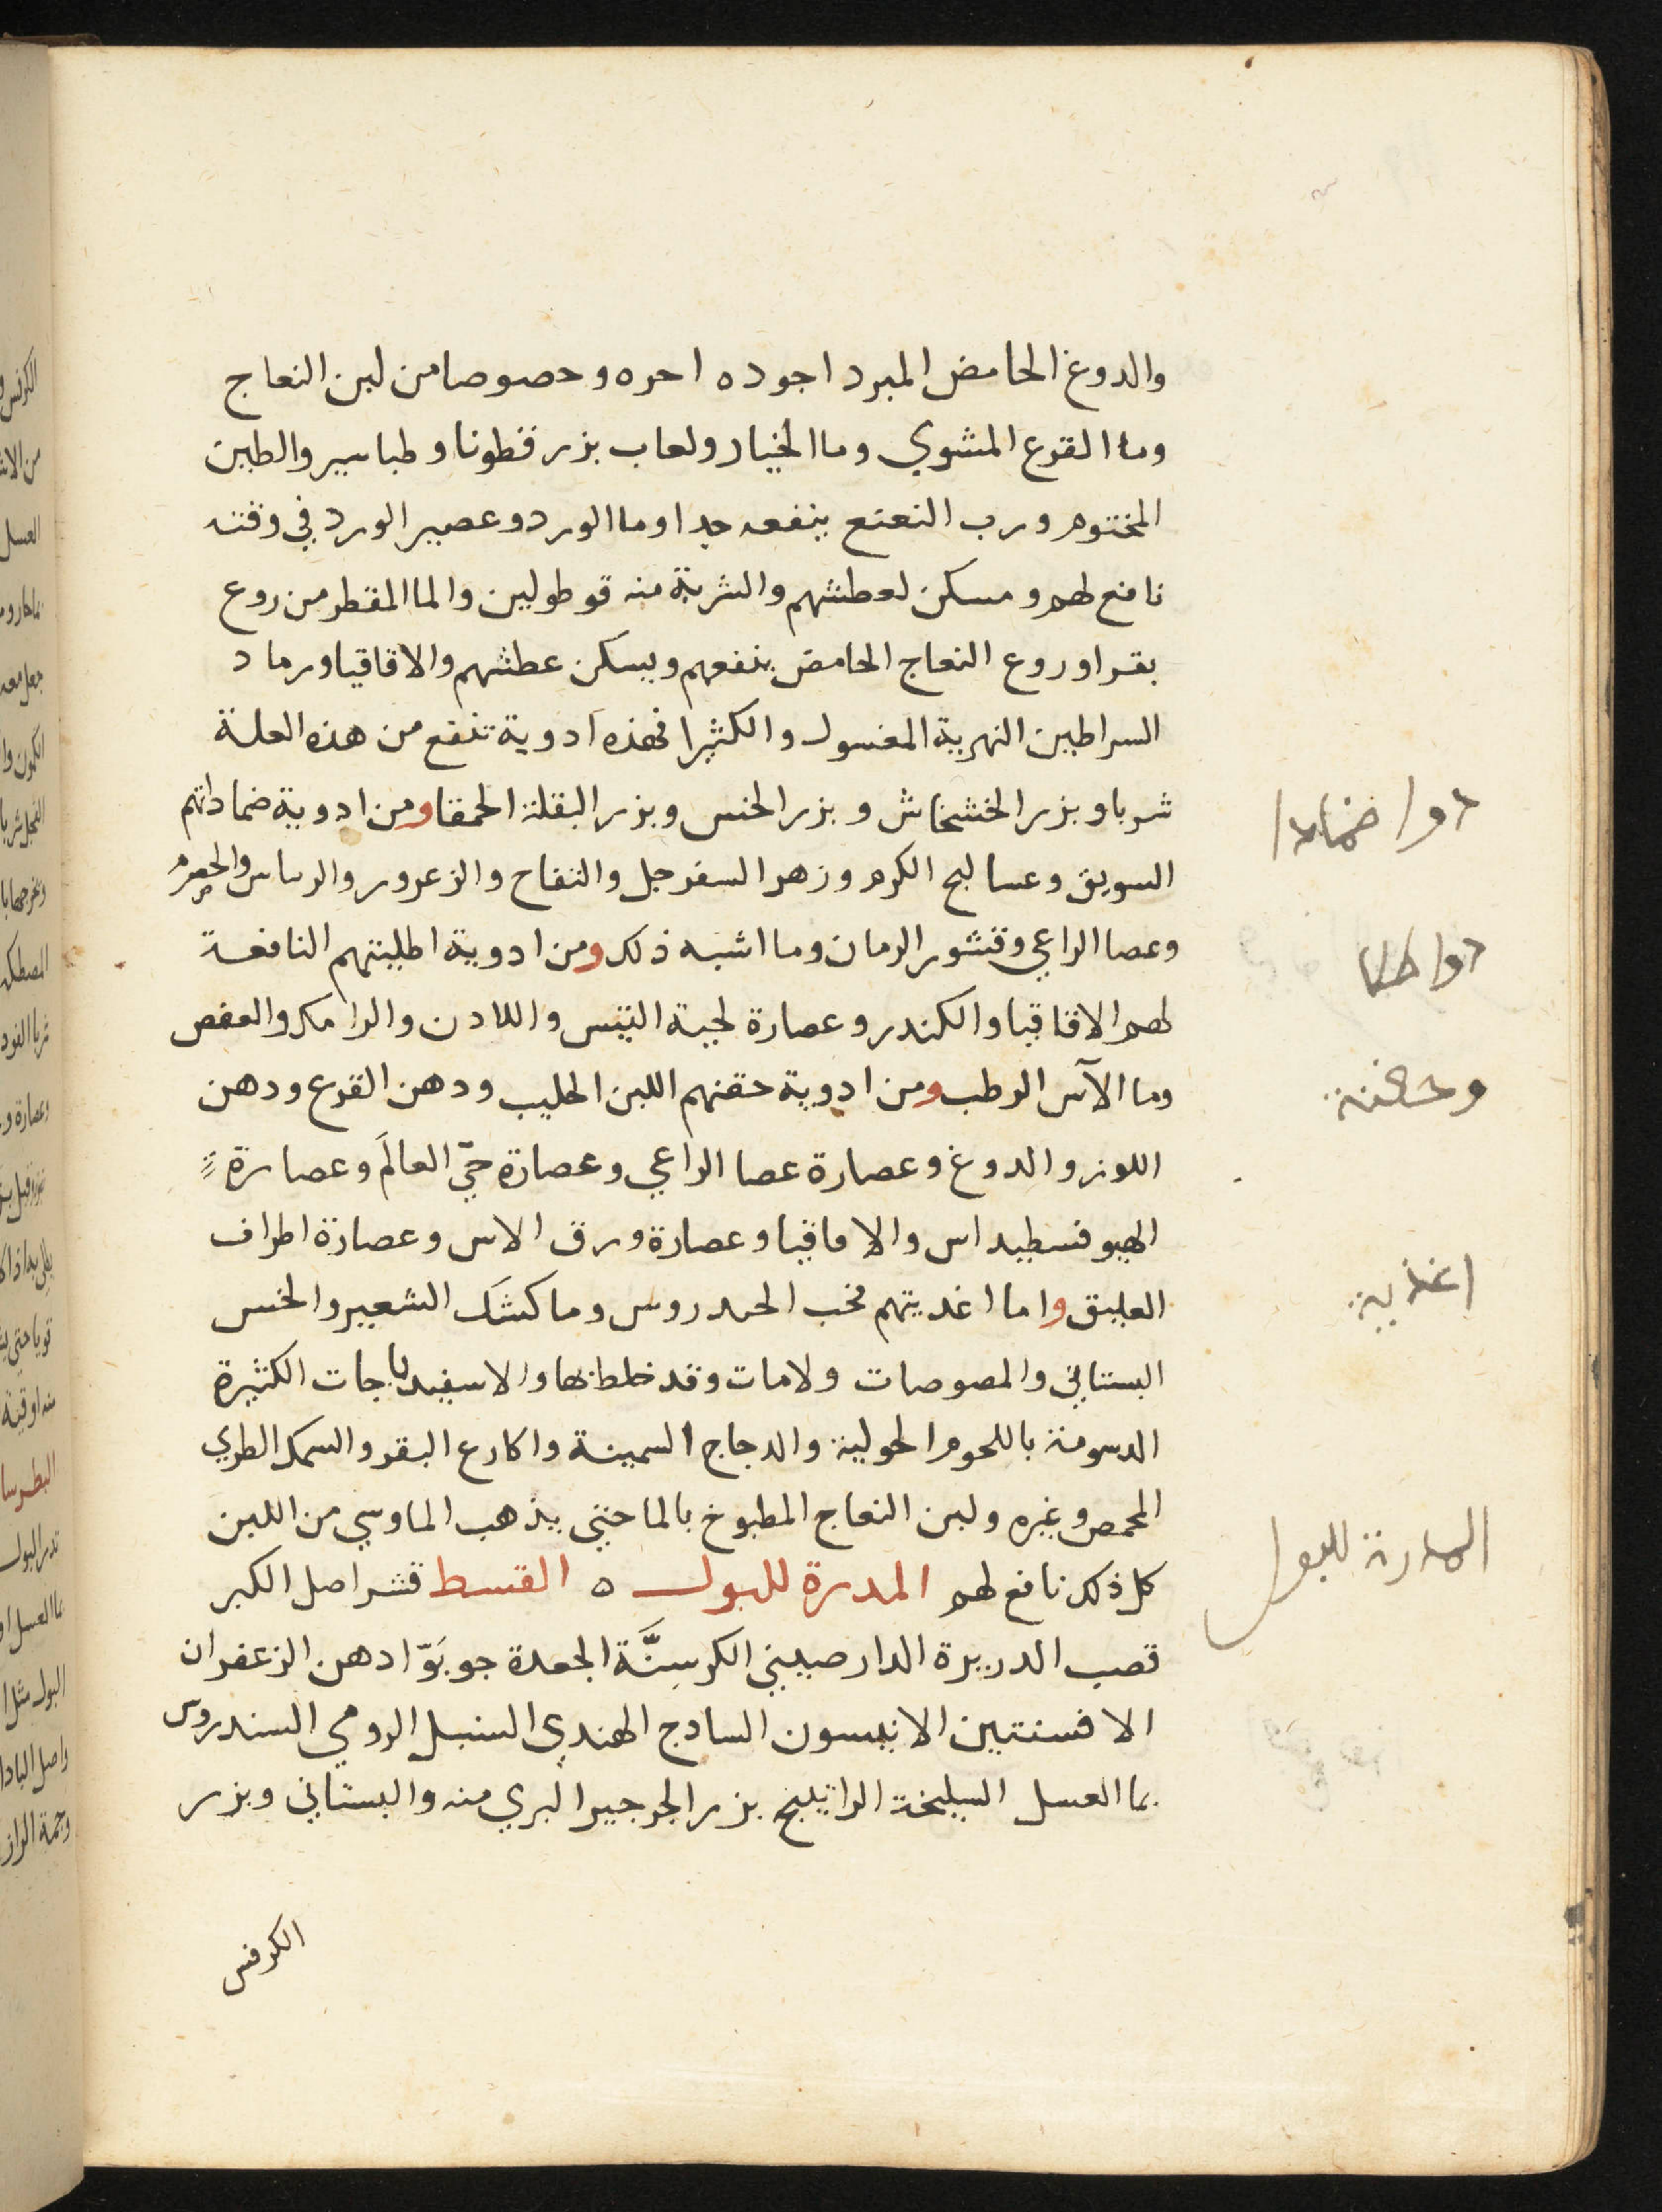 والدوغ الحامض المبرد اجوده احره وحصوصا من لبن النعاج
وما القرع المشوي وما الخيار ولعاب بزر قطونا وطباسير والطين
المختوم ورب النعنع ينفعه جدا وما الورد وعصير الورد في وقته
نافع لهم ومسكن لعطشهم والشربة منه قوطولين والما المقطر من روع
بقر او روع النعاج الحامض ينفعهم ويسكن عطشهم والاقاقيا ورماد
السراطين النهرية المغسول والكثيرا فهذه ادوية تنفع من هذه العلة
شربا وبزر الخشخاش وبزر الخس وبزر البقلة الحمقا ومن ادوية ضماداتهم
السويق وعساليج الكرم وزهر السفرجل والتفاح والزعرور والرساس والحصرم
وعصا الراعي وقشور الرمان وما اشبه ذلك ومن ادوية اطليتهم النافعة
لهم الاقاقيا والكندر وعصارة لحية التيس واللادن والرامك والعفص
وما الآس الرطب ومن ادوية حقنهم اللبن الحليب ودهن القرع ودهن
اللوز والدوغ وعصارة عصا الراعي وعصارة حيّ العالَم وعصارة
الهيوفسطيداس والاقاقيا وعصارة ورق الاس وعصارة اطراف
العليق واما اغديتهم فخب الحندروس وما كشَك الشعير والخس
البستاني والمصوصات ولامات وقد خلط بها والاسفيدباجات الكثيرة
الدسومة باللحوم الحولية والدجاج السمينة واكارع البقر والسمك الطري
المحمص وغيره ولبن النعاج المطبوخ بالما حتي يذهب الما وبقي من اللبن
كل ذلك نافع لهم المدرة للبول ه القسط قشر اصل الكبر
قصب الدريرة الدارصيني الكرسِنَّة الجعدة جوبَوّا دهن الزعفران
الافسنتين الانيسون السادج الهندي السنبل الرومي السندروس
بما العسل السليخة الراتينج بزر الجرجير البري منه والبستاني وبزر
الكرفس
دوا ضمادا
دوا طلا
وحقنة
اغذية
المدرة للبول